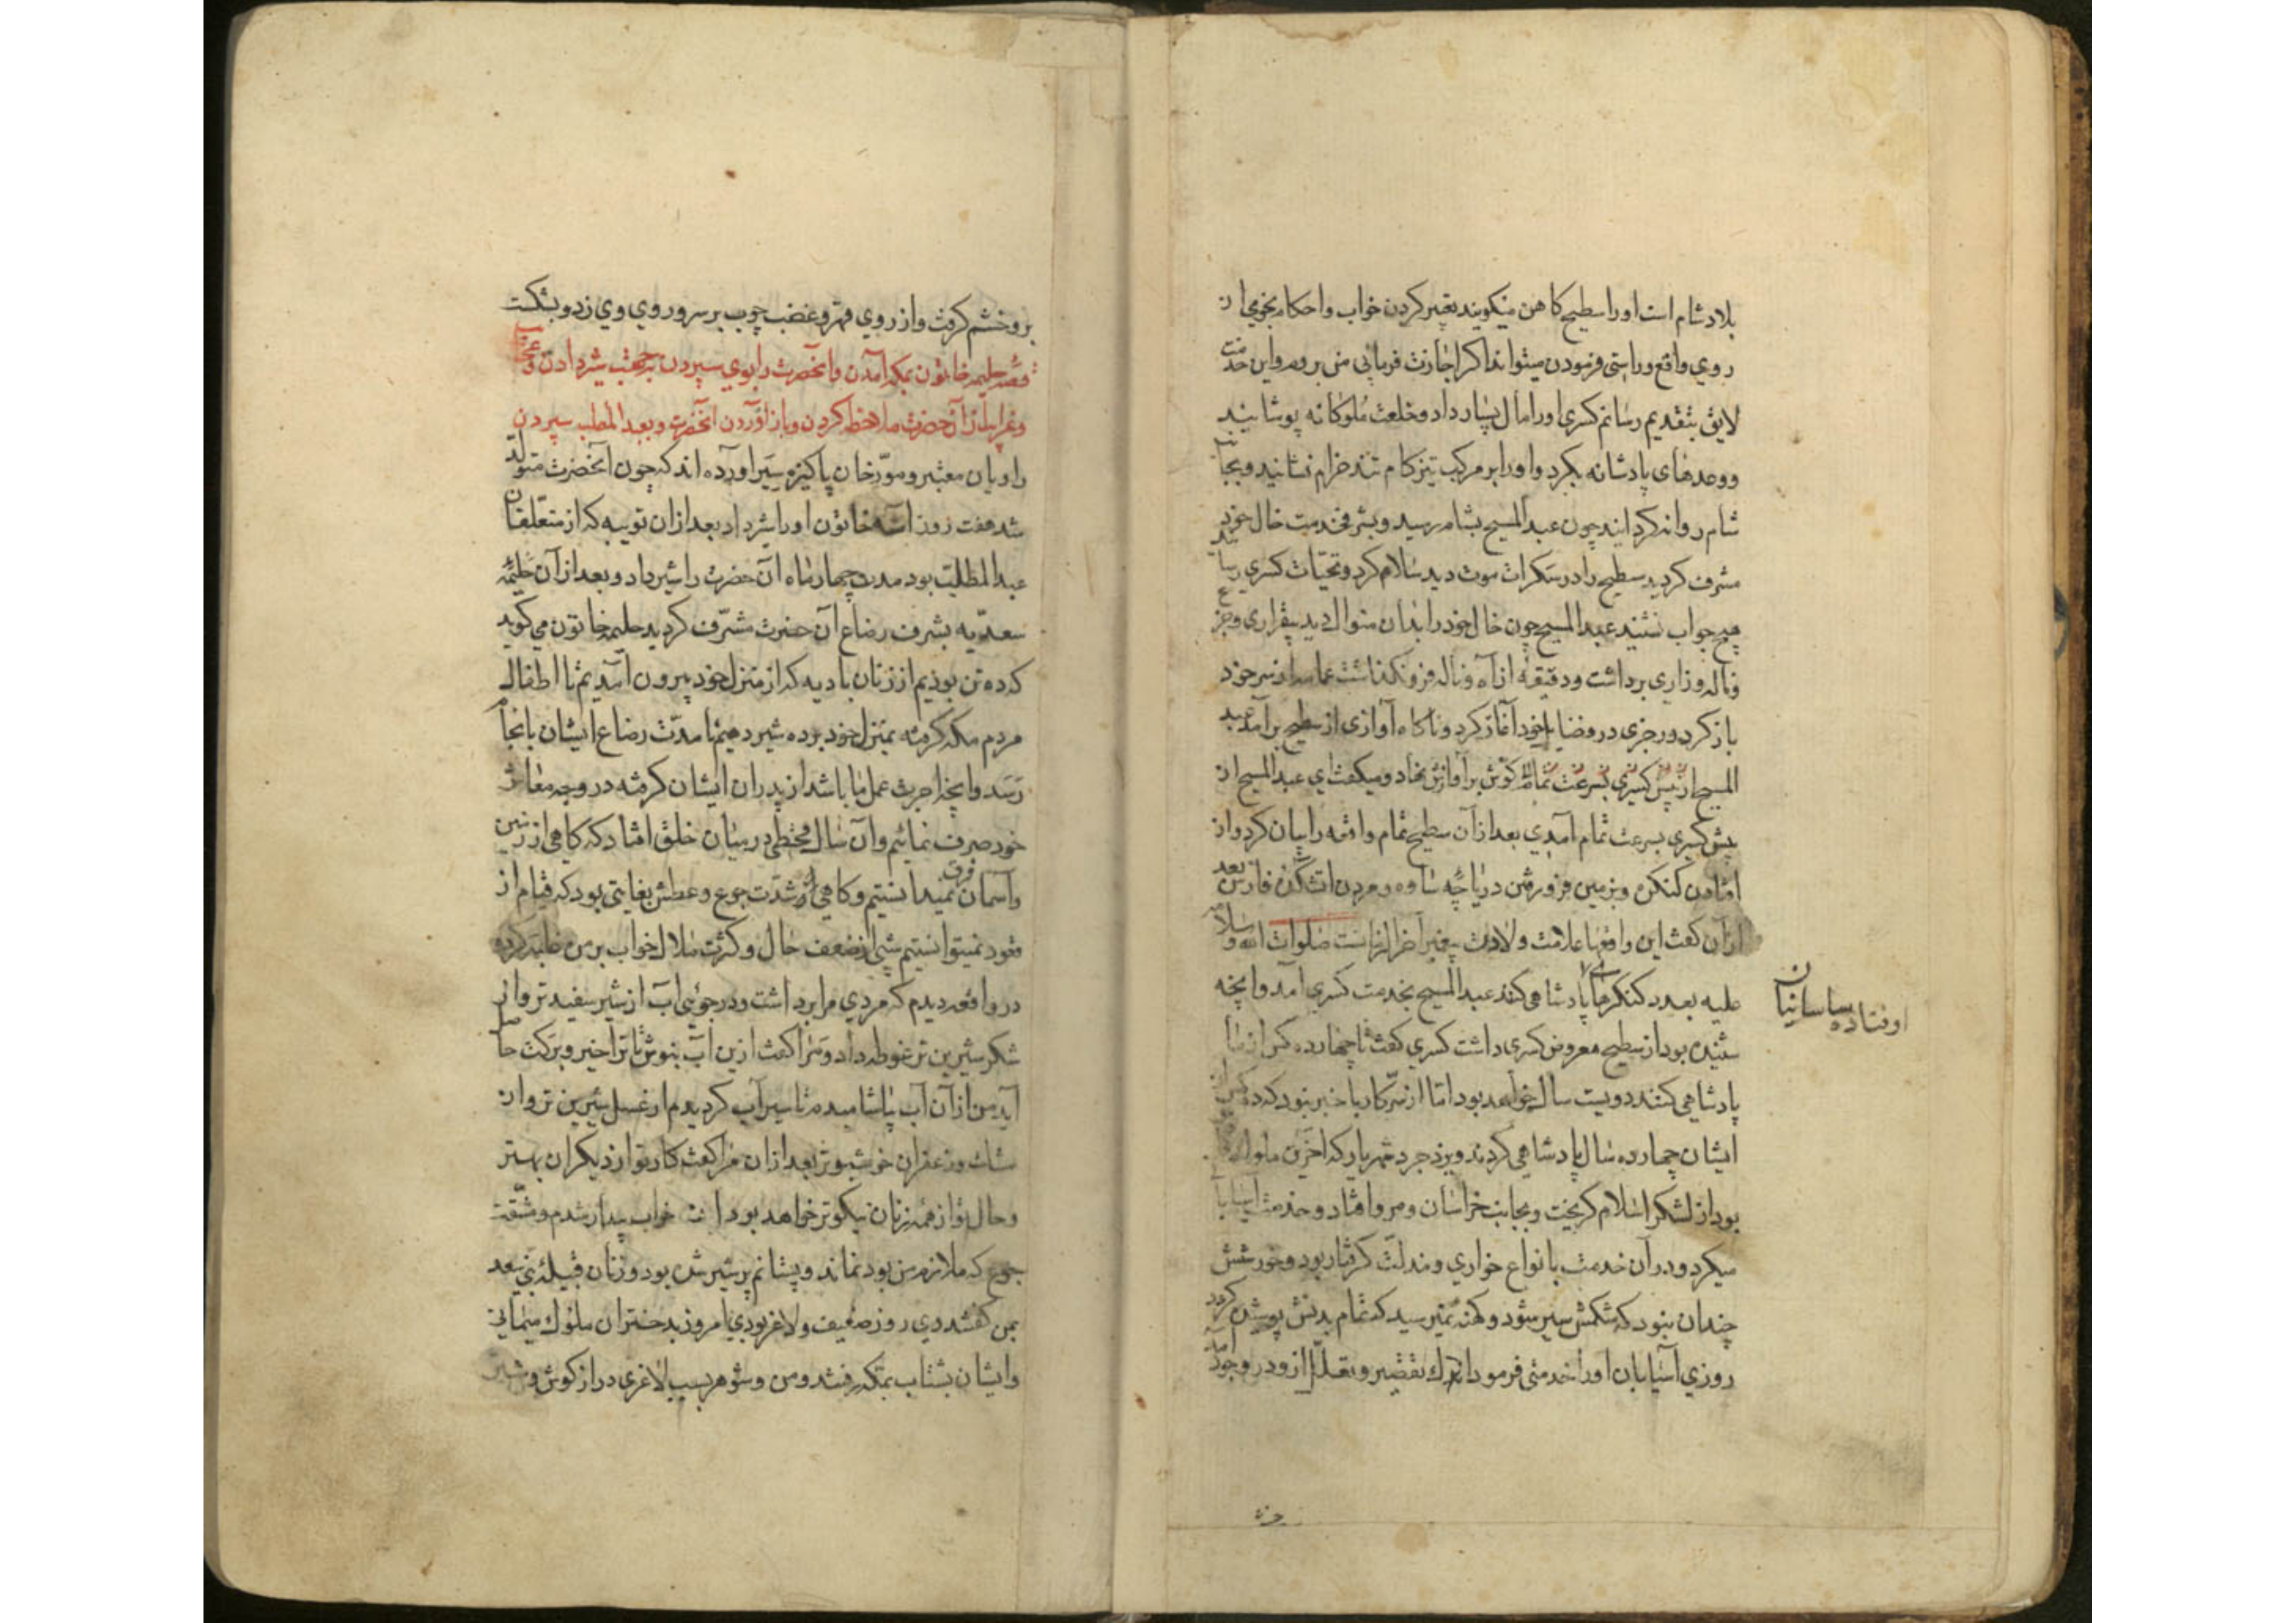 بلاد شام است اورا سطیح کاهن میکویند تعبیر کردن خواب و احکام نجومی از
روی واقع و راستی فرمودن میتواند اکر اجازت فرمائی من بروم و این خدمت
لایق بتقدیم رسانم کسری اورا مال بسیار داد و خلعت ملوکانه پوشانید
ووعدهای پادشانه بکرد و اورا بر مرکب تیزکام تند خرام نشانید و بجانب
شام روانه کردانید چون عبد المسیح بشام رسید و بشرف خدمت خال خود
مشرف کردید سطیح را در سکرات موت دید سلام کرد و تحیّات کسری رسانید
هیچ جواب نشنید عبد المسیح چون خال خود را بدان منوال دید بیقراری و جزع
و ناله وزاری برداشت و دقیقه از آه و ناله فرو نکذاشت عمامه از سر خود
باز کرد و رجزی در وفضایل خود آغاز کرد و ناکاه آوازی از سطیح برآمد عبد
المسیح از پیش کسری بسرعت تمام کوش برآوازش نهاد و میکفت ای عبد المسیح از
پیش کسری بسرعت تمام آمدی بعد از آن سطیح تمام واقعه را بیان کرد و از
افتادن کنکره و بزمین فرو رفتن دریاچه ساوه و مردن اتشکده فارس بعد
از آن کفت این واقعها علامت ولادت پیغمبر آخر الزمانست صلوات الله و سلامه
علیه بعدد کنکرها پادشاهی کنند عبد المسیح بخدمت کسری آمد و آنچه
اوفتاده ساسانیان
شنیده بود از سطیح معروض کسری داشت کسری کفت تا چهارده کس از ما
پادشاهی کنند دویست سال خواهد بود امّا از سرّ کار با خبر نبود که ده کس از
ایشان چهارده سال پادشاهی کردند و یزدجرد شهریار که آخرین ملوک
بود از لشکر اسلام کریخت و بجانب خراسان و مرو افتاد و خدمت آسیابان
میکرد و در آن خدمت بانواع خواری و مذلّت کرفتار بود و خورشش
چندان نبود که شکمش سیر شود و کهنه نمیرسید که تمام بدنش پوشیده کردد
روزی آسیابان اورا خدمتی فرمود اندک تقصیر و تعلّل ازو در وجود آمد
برو خشم کرفت و از روی قهر و غضب چوب بر سر و روی وی زد و بشکست
قصّه حلیمه خاتون بمکه آمدن و آنحضرت را بوی سپردن بجهت شیر دادن و عجایب
و غرایب از آن حضرت ملاحظه کردن و باز آوردن آنحضرت و بعبد المطلب سپردن
راویان معتبر و مورّخان پاکیزه سیَر آورده اند که چون آنحضرت متولّد
شد هفت روز آمنه خاتون اورا شیر داد بعد از آن ثویبه که از متعلّقان
عبد المطلّب بود مدت چهار ماه آن حضرت را شیر داد و بعد از آن حلیمه
سعدّیه بشرف رضاع آن حضرت مشرّف کردید حلیمه خاتون می کوید
که ده تن بودیم از زنان بادیه که از منزل خود بیرون آمدیم تا اطفال
مردم مکه کرفته بمنزل خود برده شیر دهیم تا مدّت رضاع ایشان بانجام
رسد و آنچه اجرت عمل ما باشد از پدران ایشان کرفته در وجه معاش
خود صرف نمائیم و آن سال قحطی در میان خلق افتاد که کاهی از زمین
و آسمان فرق نمیدانستیم و کاهی از شدّت جوع و عطش بغایتی بود که قیام از
قعود نمیتوانستیم شبی از ضعف حال و کثرت ملال خواب بر من غلبه کرده
در واقعه دیدم که مردی مرا برداشت و در جوئی آب از شیر سفید تر و از
شکر شیرین تر غوطه داد و مرا کفت ازین آب بنوش تا ترا خیر و برکت حاصل
آید من از آن آب بیاشامیدم تا سیر آب کردیدم از عسل شیرین تر و از
مشک و زعفران خوشبوتر بعد از ان مرا کفت کار تو از دیکران بهتر
و حال تو از همه زنان نیکوتر خواهد بود از خواب بیدار شدم و مشقّت
جوع که ملازم من بود نماند و پستانم پر شیر شده بود و زنان قبیله بنی سعد
بمن کفتند دی روز ضعیف و لاغر بودی امروز بدختران ملوک میمانی
و ایشان بشتاب بمکه رفتند و من و شوهر بسبب لاغری دراز کوش و شتر